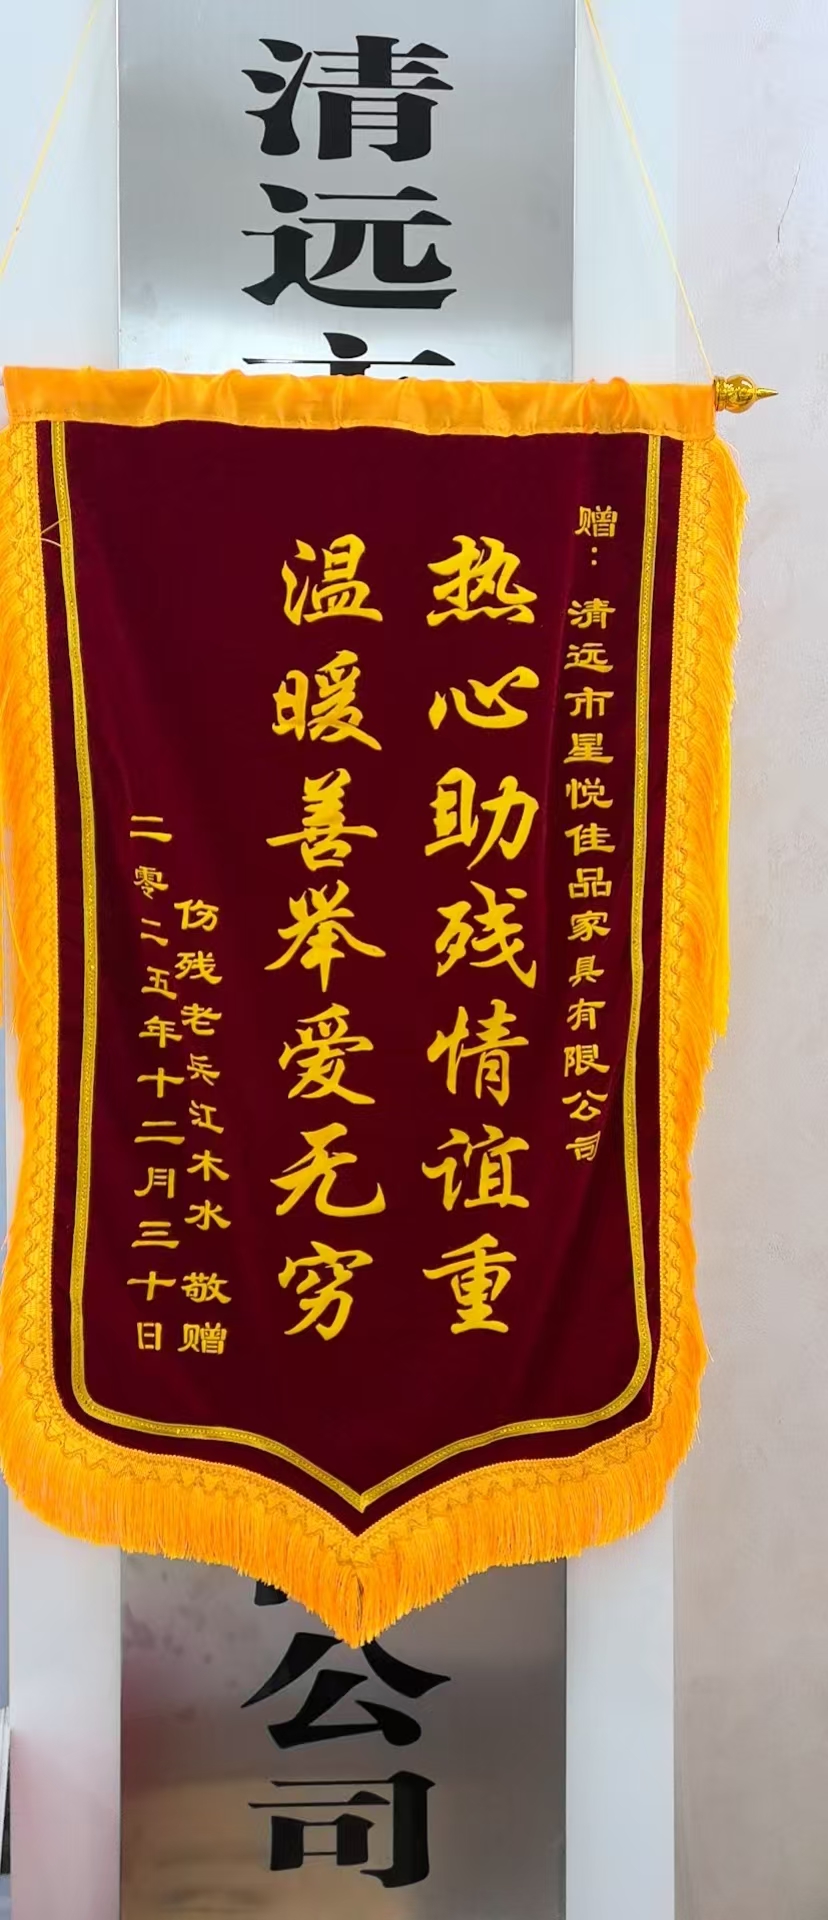 清远
赠：清远市星悦佳品家具有限公司
热心助残情谊重
温暖善举爱无穷
伤残老兵江木水 敬赠
二零二五年十二月三十日
公司